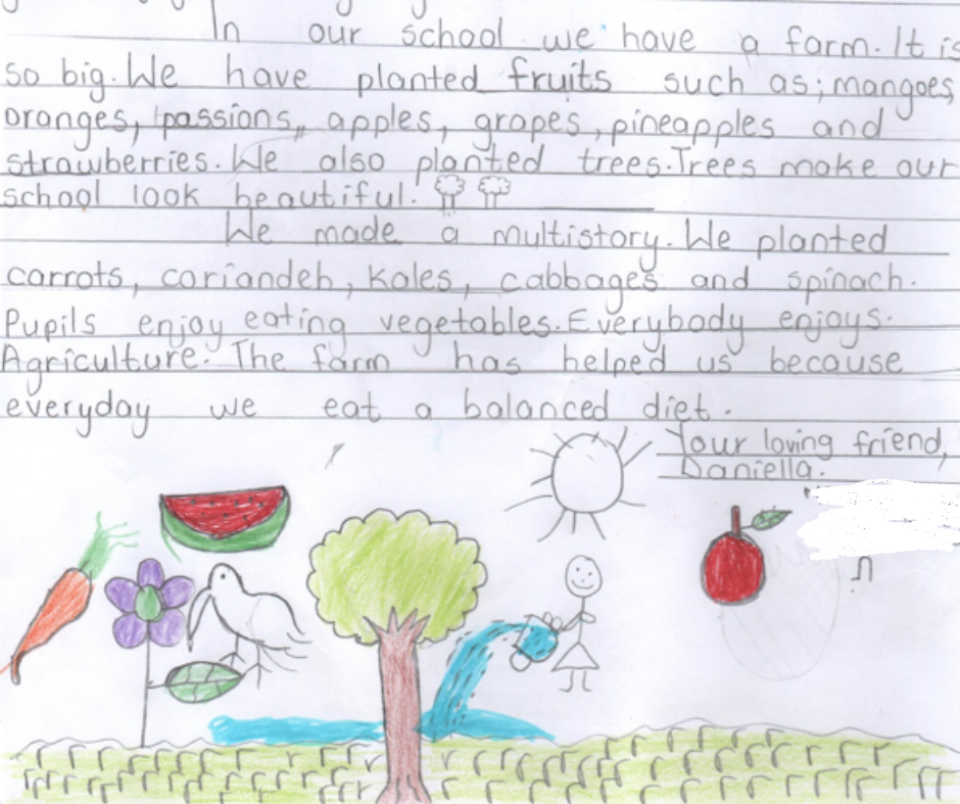 In our school we have a farm. It is
so big. We have planted fruits such as; mangoes,
oranges, passions, apples, grapes, pineapples and
strawberries. We also planted trees. Trees make our
school look beautiful.
We made a multistory. We planted
carrots, coriandeh, kales, cabbages and spinach.
Pupils enjoy eating vegetables. Everybody enjoys.
Agriculture. The farm has helped us because
everyday we eat a balanced diet.
Your loving friend,
Daniella.